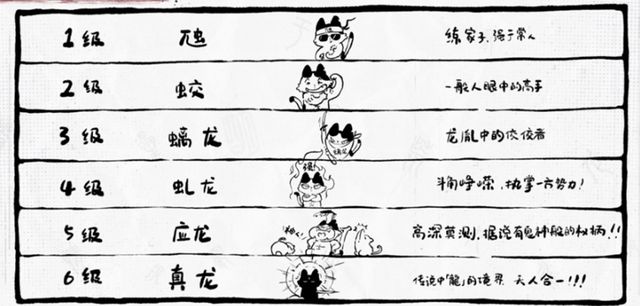 1级 虺 练家子、强于常人
2级 蛟 一般人眼中的高手
3级 螭龙 龙胤中的佼佼者
4级 虬龙 头角峥嵘,执掌一方势力!
5级 应龙 高深莫测,据说有鬼神般的权柄!!
6级 真龙 传说中「龍」的境界 天人合一!!!